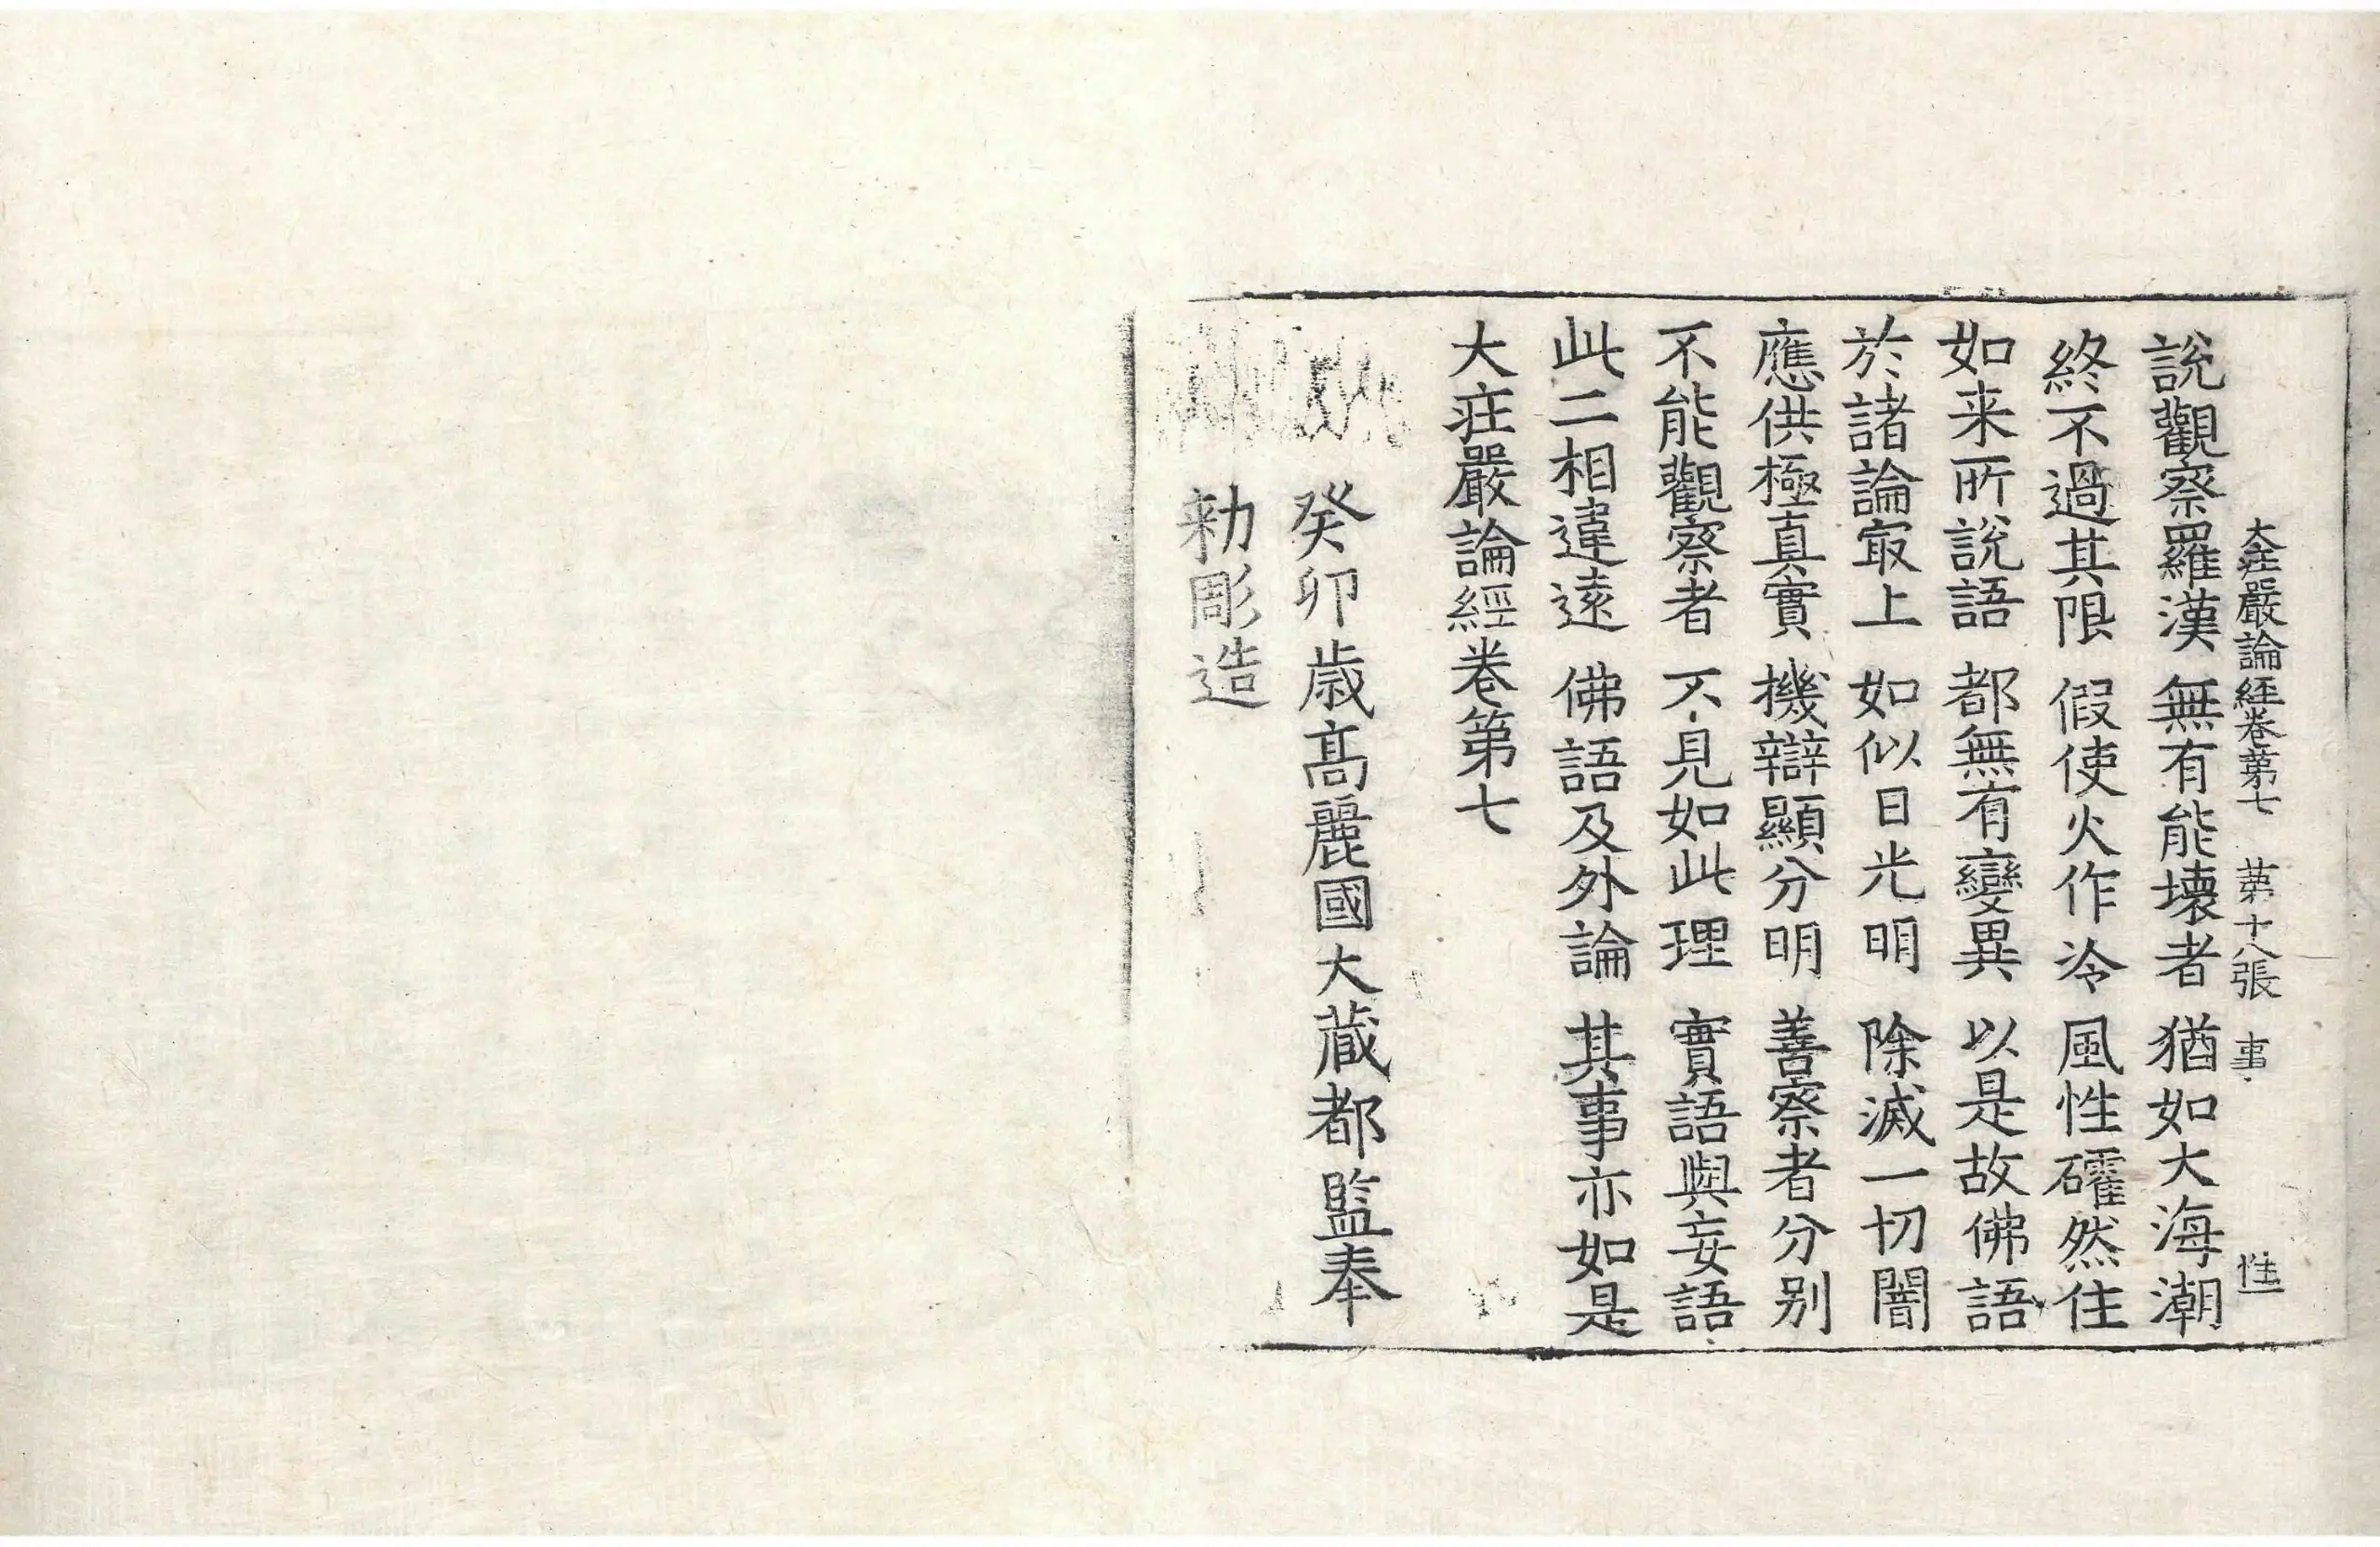 大庄嚴論經卷第七 第十八張 事 性
說觀察羅漢 無有能壞者 猶如大海潮
終不過其限 假使火作冷 風性礭然住
如来所說語 都無有變異 以是故佛語
於諸論㝡上 如似日光明 除滅一切闇
應供極真實 機辯顯分明 善察者分別
不能觀察者 不見如此理 實語與妄語
此二相違遠 佛語及外論 其事亦如是
大庄嚴論經卷第七
癸卯歳高麗國大藏都監奉
勑彫造